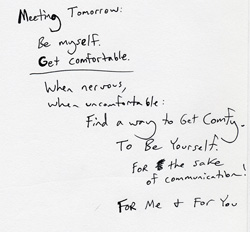 Meeting Tomorrow:
Be myself.
Get comfortable.
When nervous,
when uncomfortable:
Find a way to Get Comfy.
To Be Yourself.
For the sake
of communication!
For Me & For You